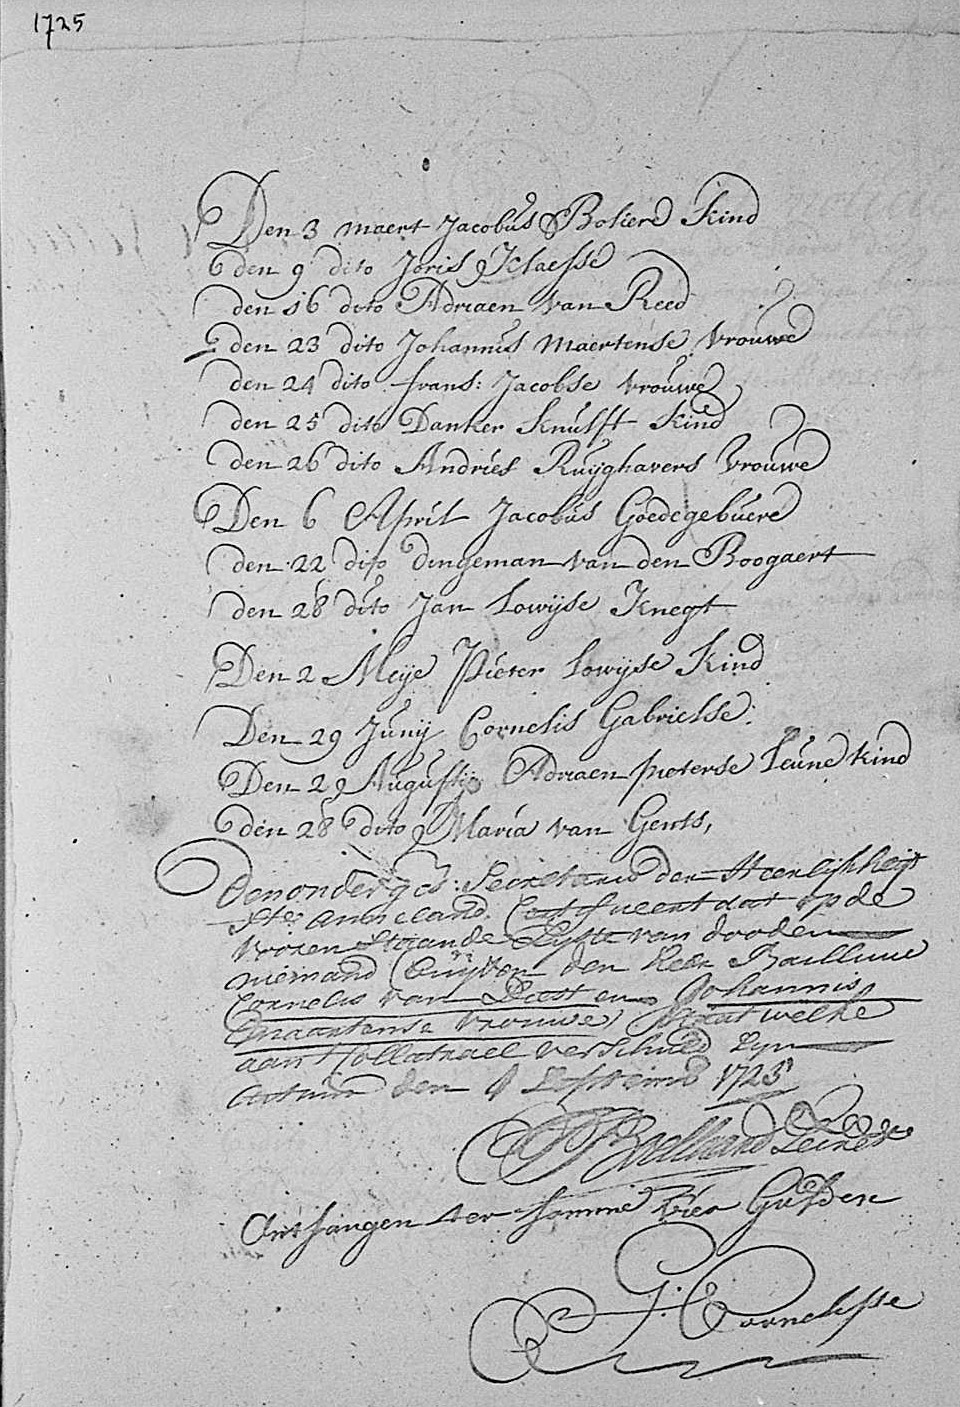 1725
Den 3 maert Jacobus Boliere Kind
den 9 dito Joris Klaesse
den 16 dito Adriaen van Reed
den 23 dito Johannis Maertense Vrouwe
den 24 dito frans: Jacobse vrouwe
den 25 dito Danker Knulft Kind
den 26 dito Andries Ruijghavers Vrouwe
Den 6 April Jacobus Goedegebuere
den 22 dito dingeman van den Boogaert
den 28 dito Jan Lowijse Knegt
Den 2 Meije Pieter Lowijse Kind
Den 29 Junij Cornelis Gabrielse.
Den 29 Augustij Adriaen pieterse Leune kind
den 28 dito Maria van Gents,
Den onderges: Secretaris der Heerlijkheijt
Ste: anneland. Certifieert dat op de
vooren staande Lyste van dooden
niemand (buijten den heer Bailliuw
Cornelis van Deest en Johannis
Maartense vrouwe) staat welke
aan Collatrael verschuld zyn
Actum den Septemb 1725
Secrets
Ontfangen der somme vier Gulden
J: Cornelisse